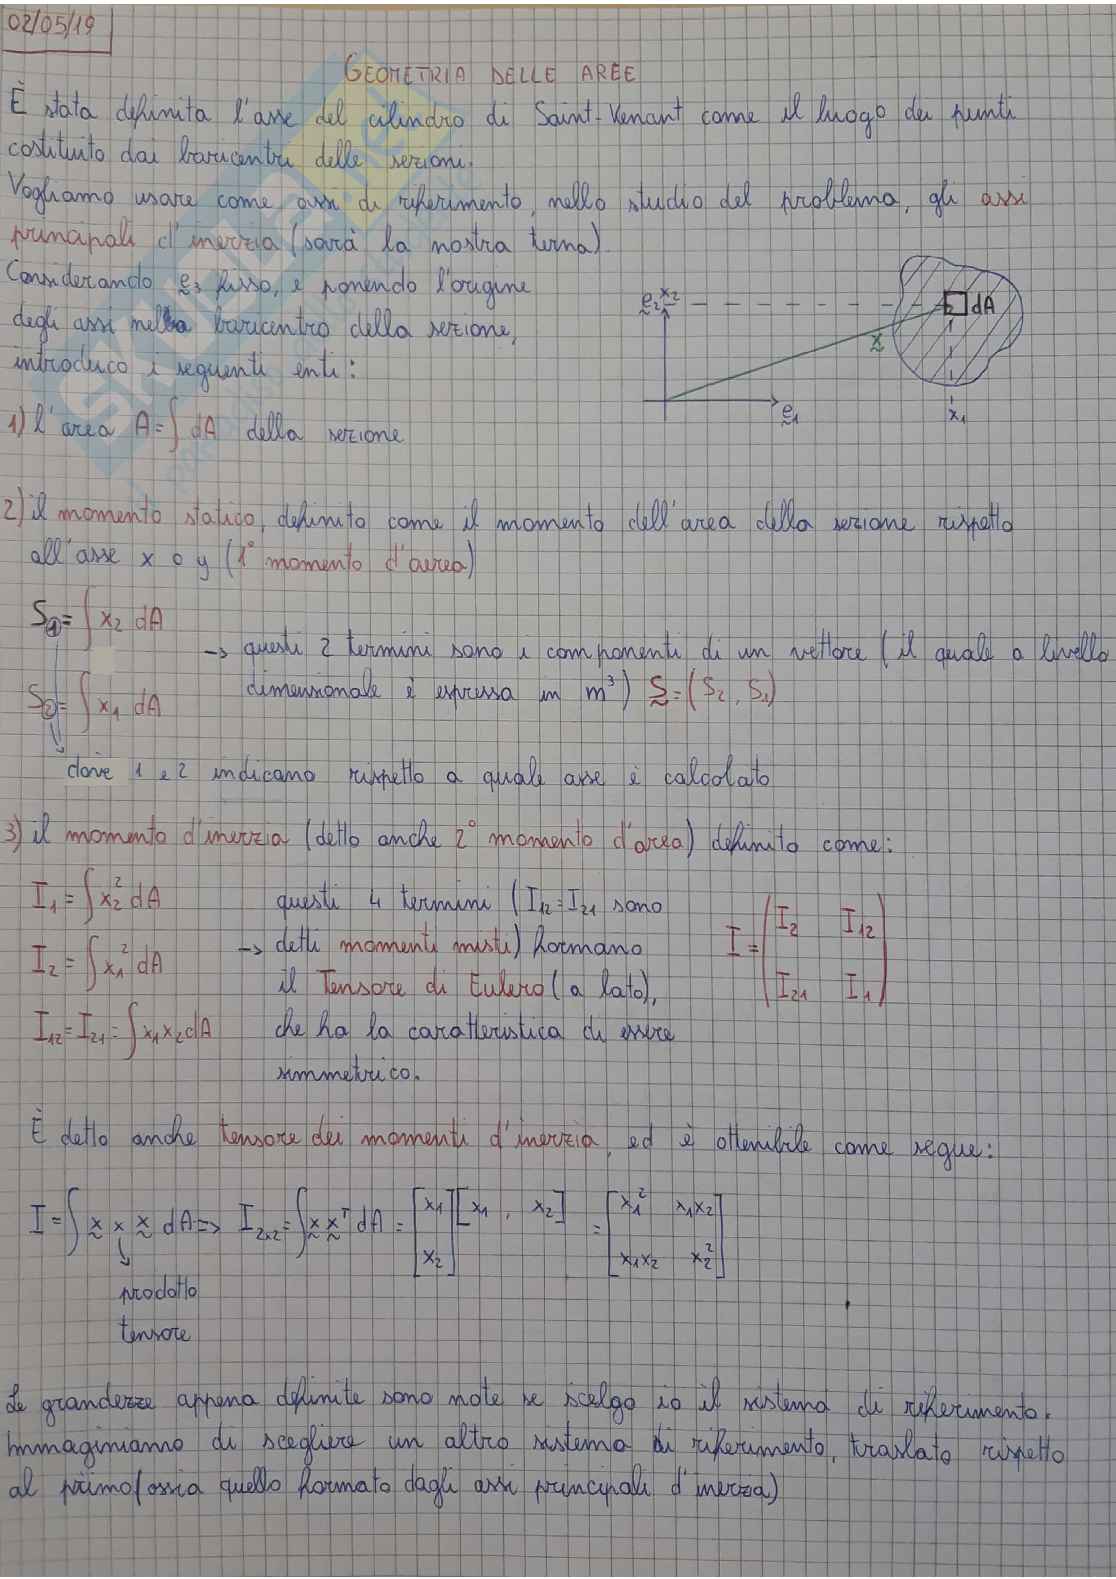 02/05/19
GEOMETRIA DELLE AREE
È stata definita l'asse del cilindro di Saint-Venant come il luogo dei punti
costituito dai baricentri delle sezioni.
Vogliamo usare come assi di riferimento, nello studio del problema, gli assi
principali d'inerzia (sarà la nostra terna).
Considerando e3 fisso, e ponendo l'origine
degli assi nella baricentro della sezione,
introduco i seguenti enti:
e2 x2
dA
x
e1
x1
1) l'area A=∫ dA della sezione
2) il momento statico, definito come il momento dell'area della sezione rispetto
all'asse x o y (1° momento d'aerea)
S1=∫ x2 dA
-> questi 2 termini sono i componenti di un vettore (il quale a livello
dimensionale è espressa in m³) S=(S2, S1)
S2=∫ x1 dA
dove 1 e 2 indicano rispetto a quale asse è calcolato
3) il momento d'inerzia (detto anche 2° momento d'area) definito come:
I1=∫x2² dA
I2=∫x1² dA
I12=I21=∫x1x2dA
questi 4 termini (I12=I21 sono
-> detti momenti misti) formano
il Tensore di Eulero (a lato),
che ha la caratteristica di essere
simmetrico.
I=(I2 I12
I21 I1)
È detto anche tensore dei momenti d'inerzia, ed è ottenibile come segue:
I=∫ x × x dA => I2x2=∫x xᵀ dA = [x1 x2] [x1, x2] = [x1² x1x2
x1x2 x2²]
prodotto
tensore
Le grandezze appena definite sono note se scelgo io il sistema di riferimento.
Immaginianno di scegliere un altro sistema di riferimento, traslato rispetto
al primo (ossia quello formato dagli assi principali d'inerzia)